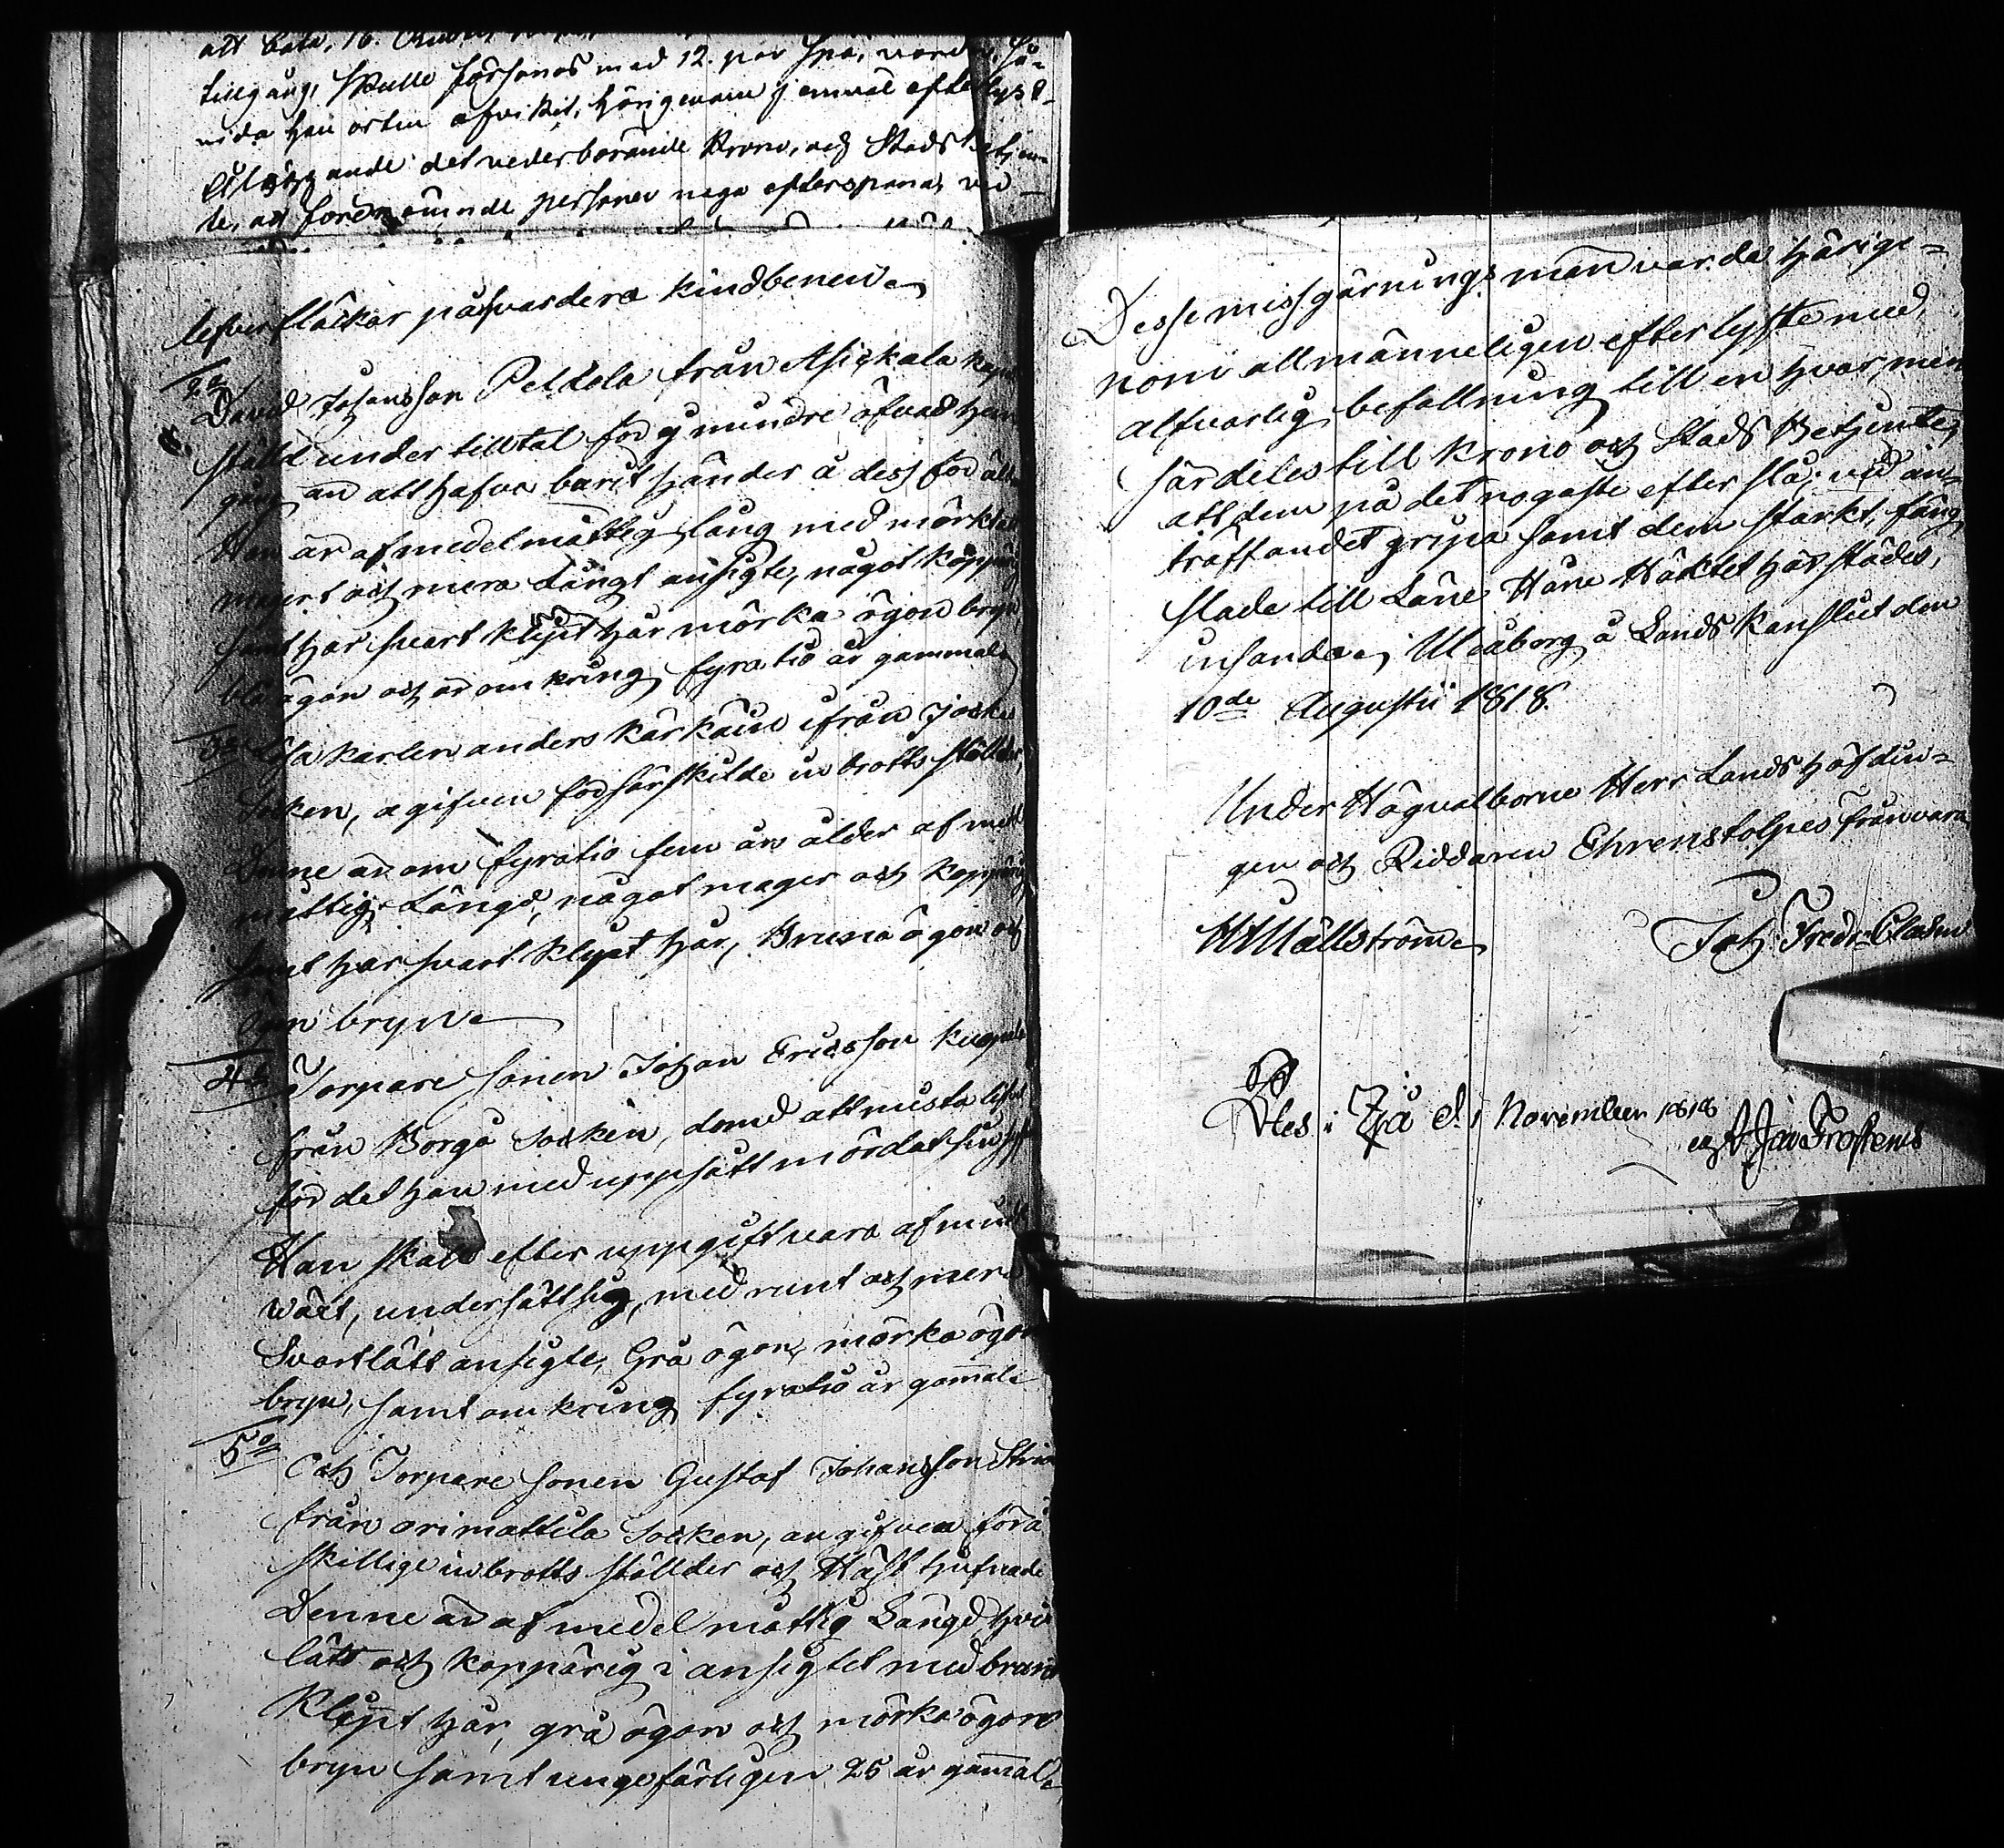 att bota, 16. Rubel
tillgång, skulle försonas med 12. par spö, varde, så-
vida han orten afvikit, härigenom jemväl efterlyst
Åliggande det vederbörande Krono, och Stads betjen-
te, att förenämnde personer noga efterspana, vid
lefverfläckar på hvardera kindbenen.
2o
David Johansson Peltola från Asickala kap
ställd under tilltal för g mindre åfvad han
gång an att hafva burit händer å dess föräl
Han är af medelmåttig lång med mörklat
magert och mera Långt ansigte, något koppärig
samt har svart klipt hår mörka ögonbryn,
blå ögon och är omkring fyratio år gammal.
3o Lösa karlen anders Kärkäin ifrån Jockas
Socken, agifven för särskilde inbrotts stölder,
Denne är om fyratio fem års ålder af medel
måttig Längd, något mager och koppärig
samt har svart klipt hår, Bruna ögon och
ögon bryn.
4o Torpare sonen Johan Ericsson
från Borgå Socken, dömd att mista lifvet
för det han med uppsått mördat sin
Han skall efter uppgift vara af mindre
växt, undersättsig, med runt och mera
Svartlätt ansigte, Grå ögon, mörka ögon
bryn, samt omkring fyratio år gam̄al.
5o
Och Torpare sonen Gustaf Johansson
från orimattila Socken, angifven för å
skillige inbrotts stöllder och Häst tjufnade
Denne är af medelmåttig Längd, hvit
lätt och koppärig i ansigtet med brunt
Klipt hår, grå ögon och mörka ögon
bryn samt ungefärligen 25 år gam̄al.
Desse missgärnings män varda härige-
nom allmänneligen efterlyste med,
alfvarlig befallning till en hvar, men
särdeles till krono och Stads Betjente,
att dem på det nogaste efterslå, vid an-
träffandet gripa samt dem starkt, fäng
slade till Läne Häne Häktet härstädes,
insända. Uleåborg å Lands Kansliet den
10de Augustii 1818.
Under Högvälborne Herr Landshöfdin-
gen och Riddaren Ehrenstolpes frånvaro
H Hällström
Joh: Fredr. Clason
Ples i Ijå d. 1 November 1818
af Jac Frosterus